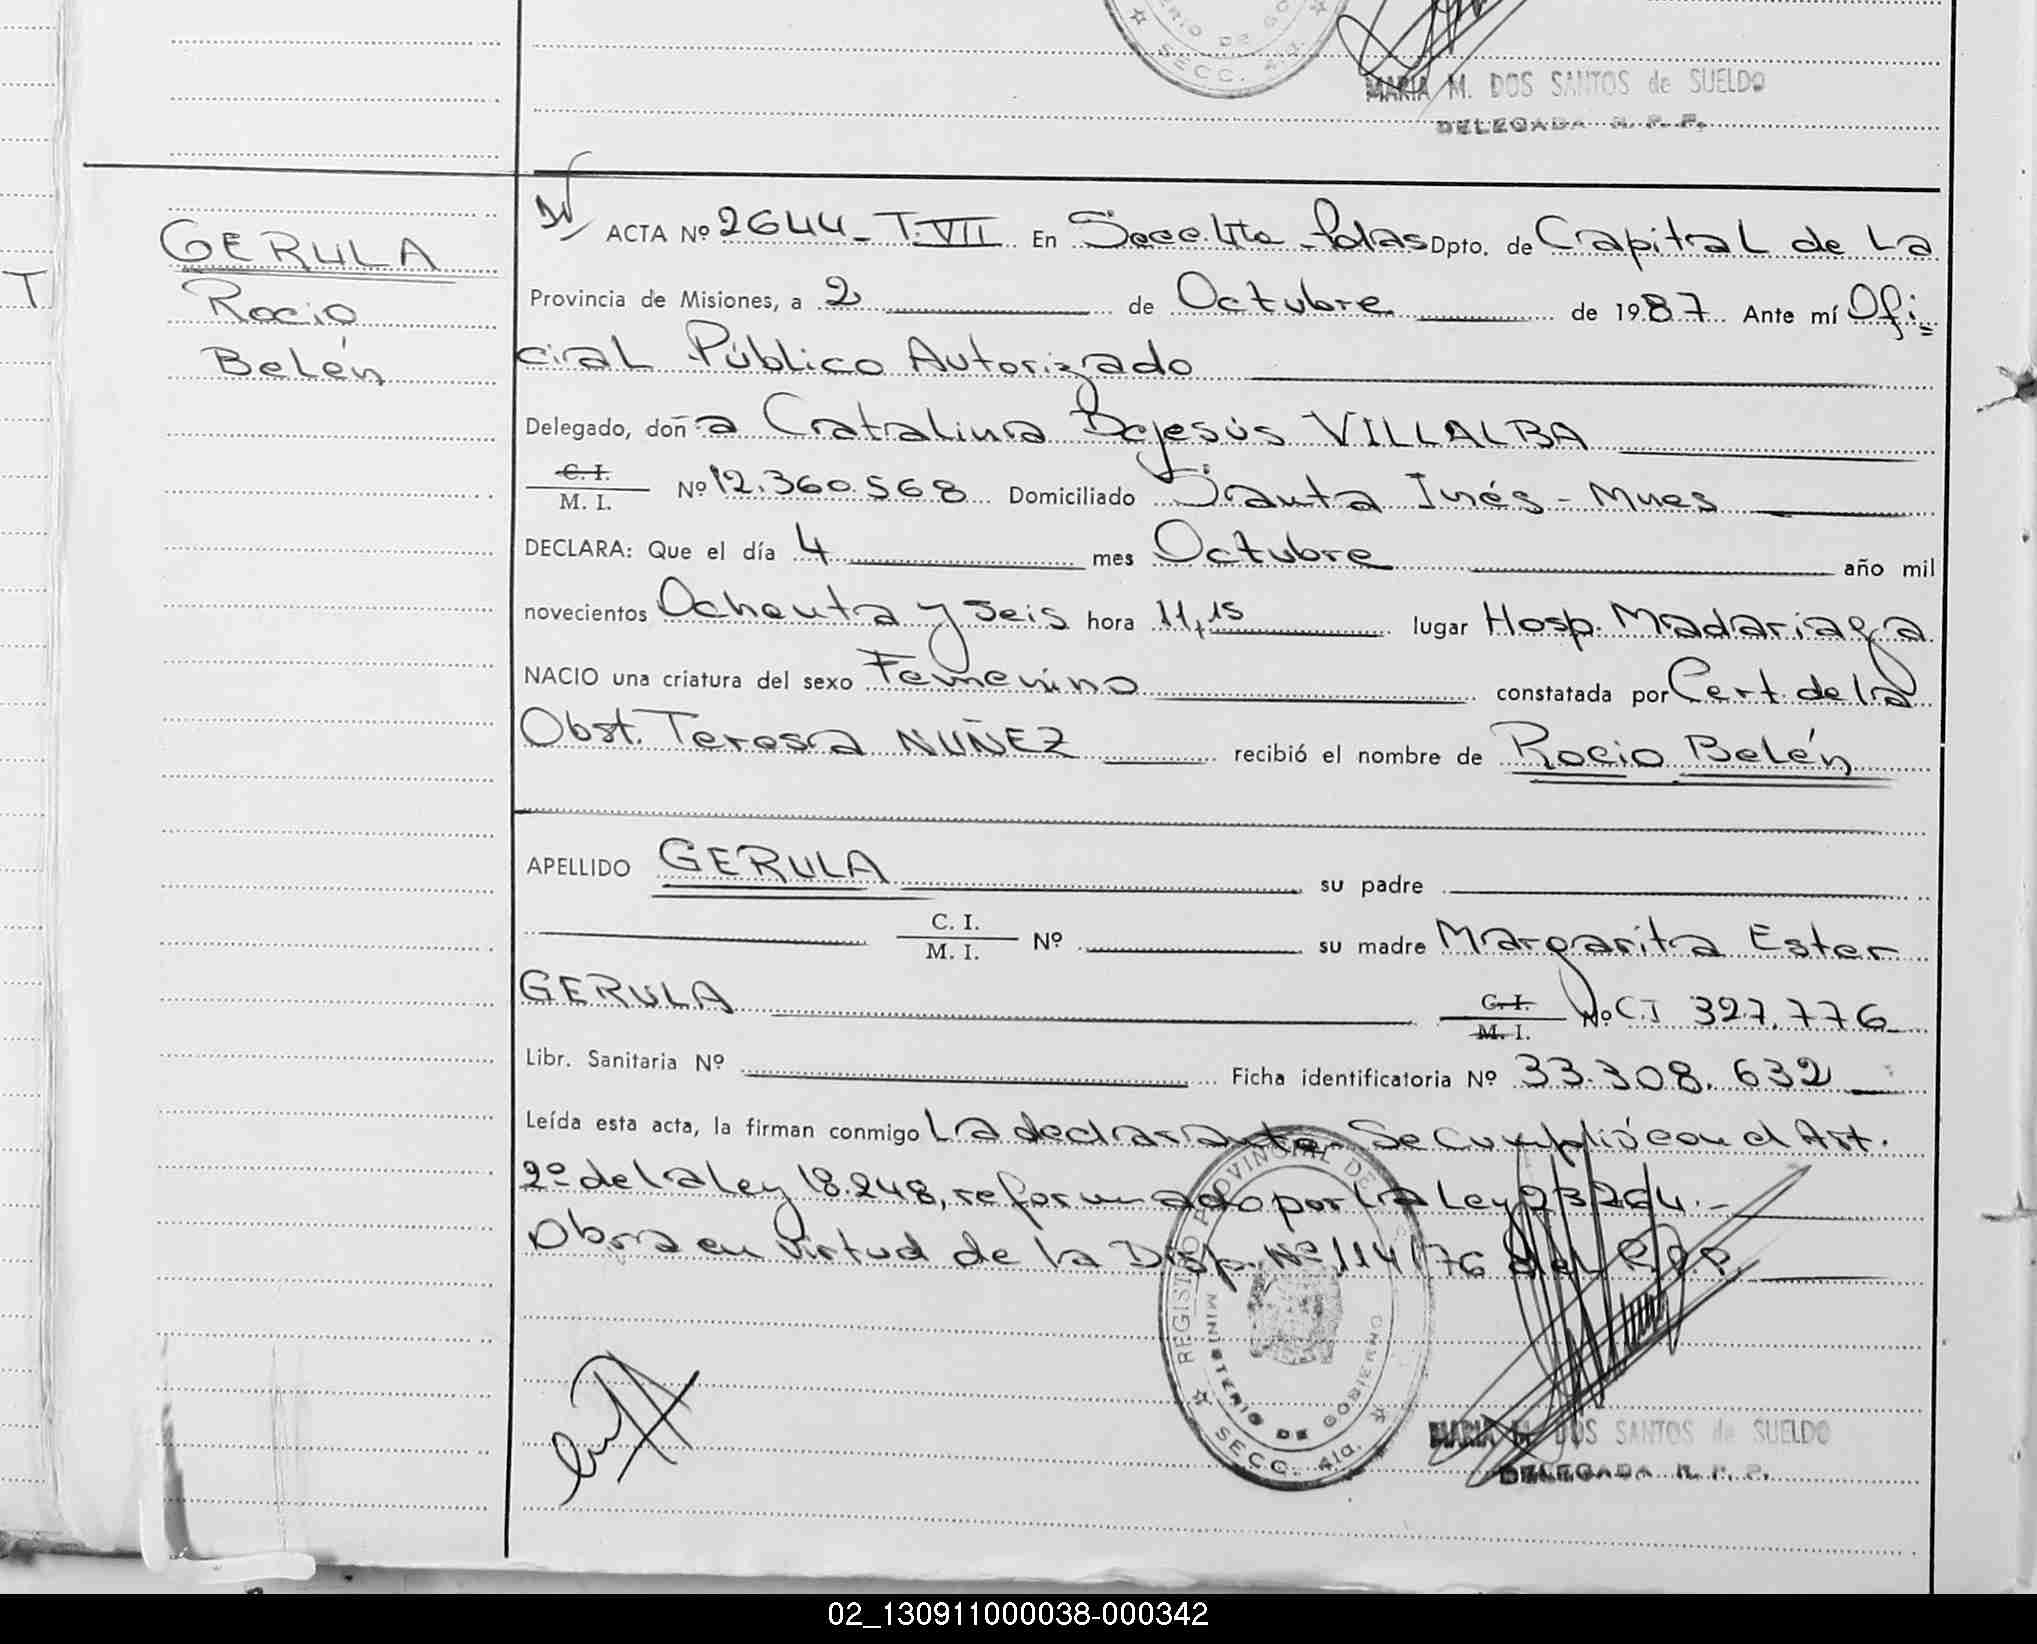 SECC. 4ta.
MARIA M. DOS SANTOS de SUELDO
DELEGADA R. P. P.
T
GERULA
Rocio
Belén
ACTA Nº 2644_T.VII En Secc.4ta _Pdas Dpto. de Capital de La
Provincia de Misiones, a 2 de Octubre de 1987 Ante mí Ofi=
cial Público Autorizado
Delegado, doña Catalina Dejesús VILLALBA
C. I.
M. I. Nº 12.360.568 Domiciliado Santa Inés - Mnes
DECLARA: Que el día 4 mes Octubre año mil
novecientos Ochenta y seis hora 11,15 lugar Hosp. Madariaga
NACIO una criatura del sexo Femenino constatada por Cert. de la
Obst. Teresa NUÑEZ recibió el nombre de Rocio Belén
APELLIDO GERULA su padre
C. I.
M. I. Nº su madre Margarita Ester
GERULA C. I. M. I. Nº CI 327.776
Libr. Sanitaria Nº Ficha identificatoria Nº 33.308.632
Leída esta acta, la firman conmigo La declarante. Se Cumplió con el Art.
2º de la ley 18.248, reformado por La Ley 23264.-
Obra en virtud de la Disp. Nº 114/76 del R.P.P.
REGISTRO PROVINCIAL DE
MINISTERIO DE GOBIERNO
SECC. 4ta.
MARIA M. DOS SANTOS de SUELDO
DELEGADA R. P. P.
02_130911000038-000342